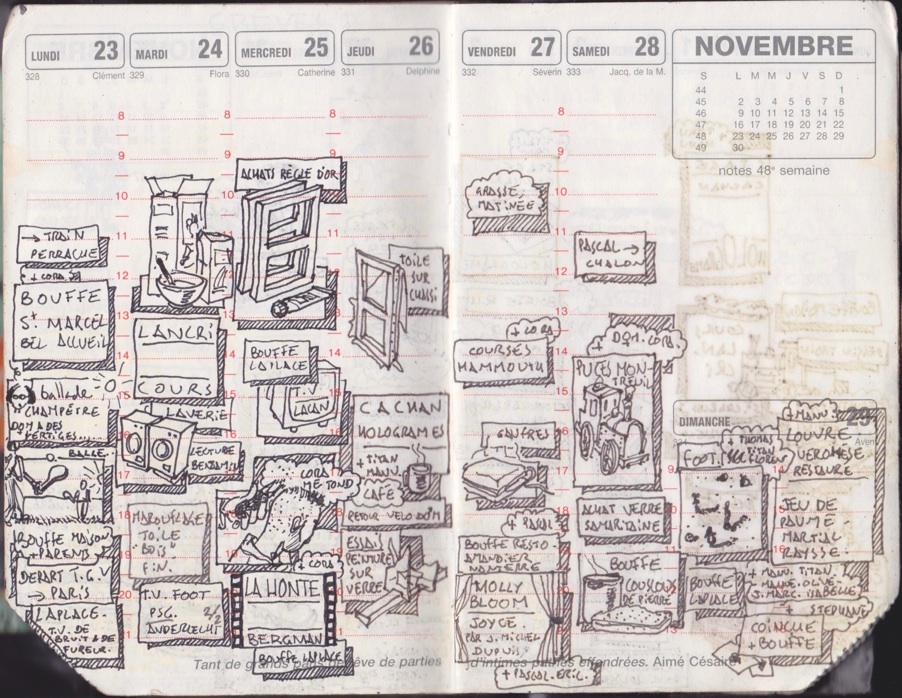 LUNDI 23
328 Clément
→ TRAIN
PERRACHE
+ CORA
BOUFFE
St MARCEL
BEL ACCUEIL
ballade
CHAMPÊTRE
BALLE
BOUFFE MAISON
+ PARENTS
DEPART T.G.V
→ PARIS
LAPLACE.
T.V. DE
BRUIT & DE
FUREUR.
MARDI 24
329 Flora
8
9
10
11
12
LANCRI
COURS
LAVERIE
LECTURE
BENJAMIN
MAROUFLAGE
TOILE
BOIS
FIN.
T.V. FOOT
PSG. 2/2
ANDERLECHT
MERCREDI 25
330 Catherine
8
9
ACHATS RÈGLE D'OR
BOUFFE
LAPLACE
T.V
LACAN
CORA
ME TOND
+ CORA
LA HONTE
BERGMAN
BOUFFE LAPLACE
JEUDI 26
331 Delphine
8
9
10
11
12
TOILE
SUR
CHASSI
CACHAN
HOLOGRAMES
+ TITAN
MANU
CAFÉ
RETOUR VELO DOM
ESSAIS
PEINTURE
SUR
VERRE
VENDREDI 27
332 Séverin
GRASSE
MATINÉE
+ CORA
COURSES
MAMMOUTH
GAUFRES
+ PASCAL
BOUFFE RESTO
AMANDIERS
NANTERRE
MOLLY
BLOOM
JOYCE
PAR J. MICHEL
DUPUIS
+ PASCAL. ERIC.
SAMEDI 28
333 Jacq. de la M.
8
9
10
11
12
PASCAL →
CHALON
+ DOM. CORA
PUCES MON-
TREUIL
ACHAT VERRE
SAMARITAINE
BOUFFE
COUSCOUS
DE PIERRE
NOVEMBRE
S L M M J V S D
44 1
45 2 3 4 5 6 7 8
46 9 10 11 12 13 14 15
47 16 17 18 19 20 21 22
48 23 24 25 26 27 28 29
49 30
notes 48e semaine
DIMANCHE 29
FOOT.
+ THOMAS
BOUFFE
LAPLACE
+ MANU
LOUVRE
VERONESE
RESTAURE
JEU DE
PAUME
MARTIAL
RAYSSE.
+ MANU. TITAN.
J. MARC. ISABELLE
+ STEPHANE
COINCHE
+ BOUFFE
Tant de grands
rêve de parties
d'intimes
effondrées. Aimé Césaire